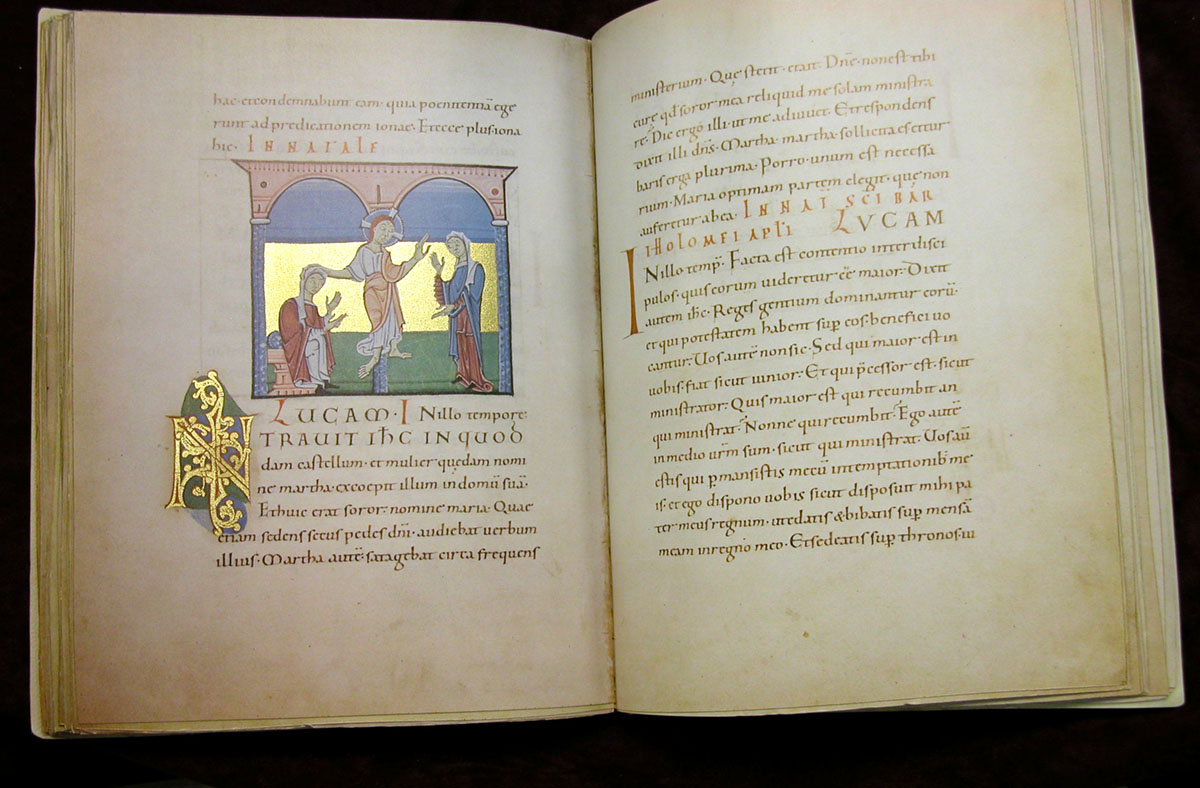 hac. et condemnabunt eam. quia poenitentiā ege
runt ad predicationem ionae. Et ecce plus iona
hic. IN NATALE
LUCAM. IN illo tempore:
INTRAVIT ihc IN QUOD
dam castellum. et mulier quędam nomi
ne martha. excoepit illum in domū suā.
Et huic erat soror. nomine maria. Quae
etiam sedens secus pedes dn̄i. audiebat verbum
illius. Martha autē. satagebat circa frequens
ministerium. Quę stetit. et ait. Dn̄e. non est tibi
curę qđ soror mea reliquid me solam ministra
re. Dic ergo illi. ut me adiuvet. Et respondens
dixit illi dn̄s. Martha. martha. sollicita es et tur
baris erga plurima. Porro. unum est necessa
rium. Maria optimam partem elegit. que non
auferetur ab ea. IN NAT̄ SC̄I BAR
THOLOMEI APL̄I LUCAM
IN illo temp̄. Facta est contentio inter disci
pulos. quis eorum videretur eē maior. Dixit
autem ihc. Reges gentium dominantur eorū.
et qui potestatem habent sup̄ eos. benefici vo
cantur. Vos autē non sic. Sed qui maior est in
vobis. fiat sicut iunior. Et qui p̄cessor est. sicut
ministrator. Quis maior est qui recumbit an
qui ministrat. Nonne qui recumbit. Ego autē
in medio vr̄m sum. sicut qui ministrat. Vos aū
estis qui p̱mansistis mecū in temptationib; me
is. et ego dispono vobis sicut disposuit mihi pa
ter meus regnum. ut edatis & bibatis sup̄ mensā
meam in regno meo. Et sedeatis sup̄ thronos. iu